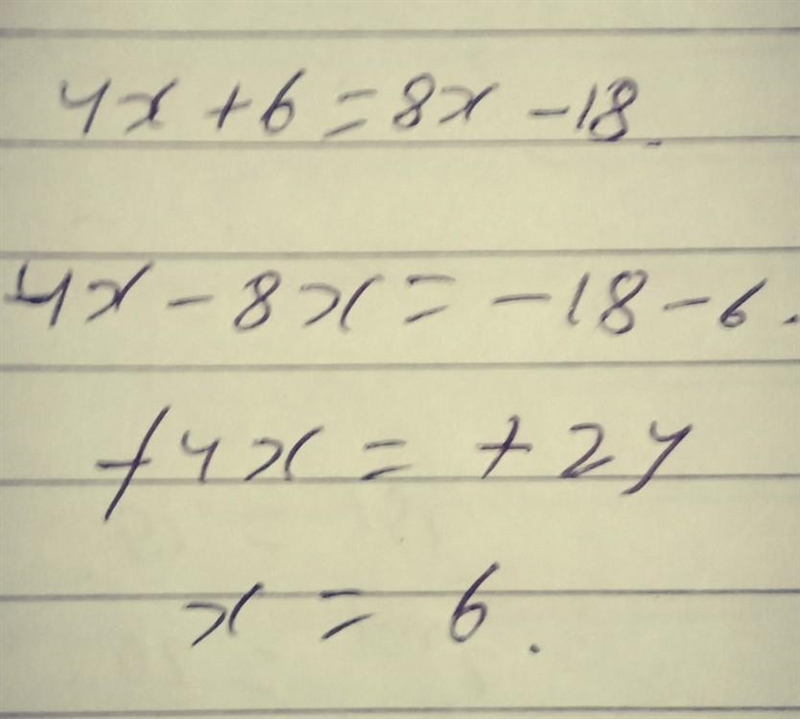 4x + 6 = 8x - 18.
4x - 8x = - 18 - 6.
+4x = + 24
x = 6.